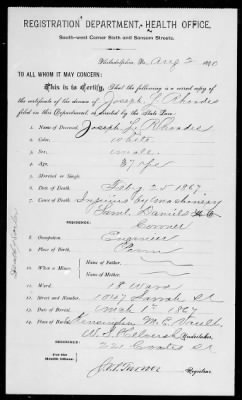 REGISTRATION DEPARTMENT, HEALTH OFFICE,
South-west Corner Sixth and Sansom Streets.
Philadelphia, Pa. Aug 2 1890
TO ALL WHOM IT MAY CONCERN:
This is to Certify, That the following is a correct copy of
the certificate of the decease of Joseph L. Rhoades
filed in this Department, as directed by the State Law:
1. Name of Deceased, Joseph L. Rhoades
2. Color, White
3. Sex, male
4. Age, 37 yrs
5. Married or Single,
6. Date of Death, Feb'y 25 1867
7. Cause of Death, Injuries by machinery
Saml. Daniels
RESIDENCE: Coroner
8. Occupation, Engineer
9. Place of Birth, Penna
10. When a Minor, Name of Father,
Name of Mother,
11. Ward, 18 Ward
12. Street and Number, 1047 Sarah St
13. Date of Burial, March 1st 1867
14. Place of Burial, Kensington M. E. Vault
W. S. Undertaker,
RESIDENCE: 221 Coates St
For the
Health Officer.
Registrar.